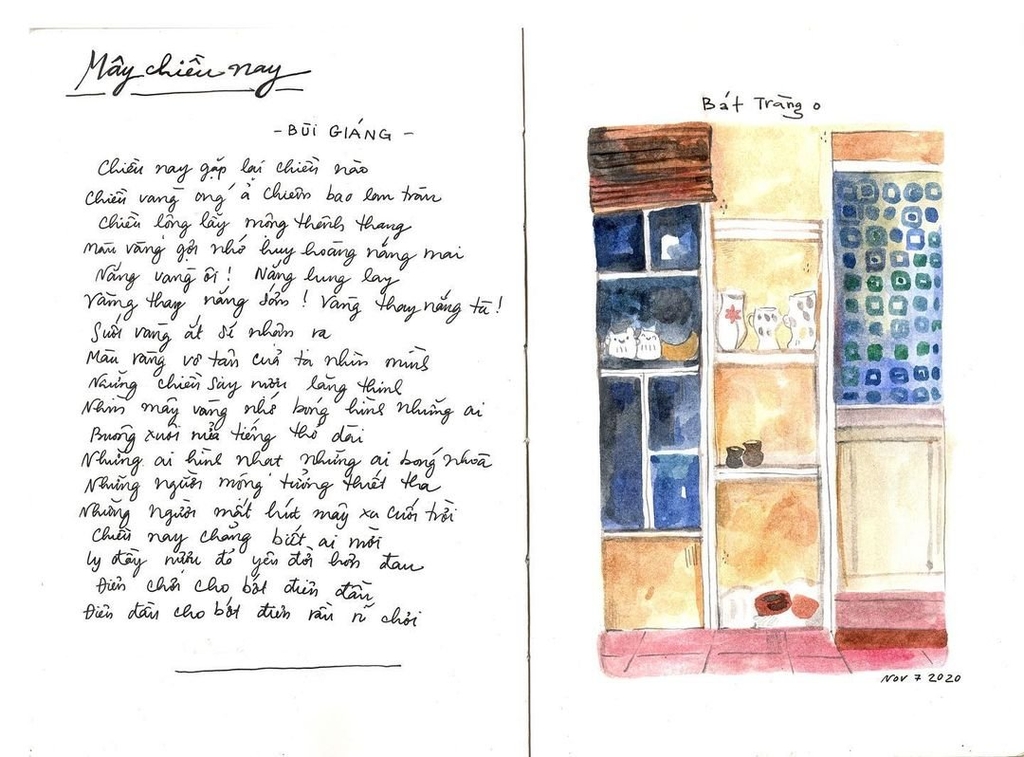 Mây chiều nay
- BÙI GIÁNG -
Chiều nay gặp lại chiều nào
Chiều vàng ong ả chiêm bao lan tràn
Chiều lộng lẫy mông thênh thang
Màu vàng gợi nhớ huy hoàng nắng mai
Nắng vàng ôi! Nắng lung lay
Vàng thay nắng sớm! Vàng thay nắng tà!
Suối vàng ắt sẽ nhận ra
Màu vàng vô tận của ta nhìn mình
Những chiều say rượu lặng thinh
Nhìn mây vàng nhớ bóng hình những ai
Buông xuôi nửa tiếng thở dài
Những ai hình nhạt những ai bóng nhòa
Những người mộng tưởng thiết tha
Những người mất hút mây xa cuối trời
Chiều nay chẳng biết ai mời
Ly đầy rượu đỏ yêu đời hơn đau
Điên chơi cho bớt điên đầu
Điên đầu cho bớt điên rầu rĩ chơi
Bát Tràng
Nov 7 2020